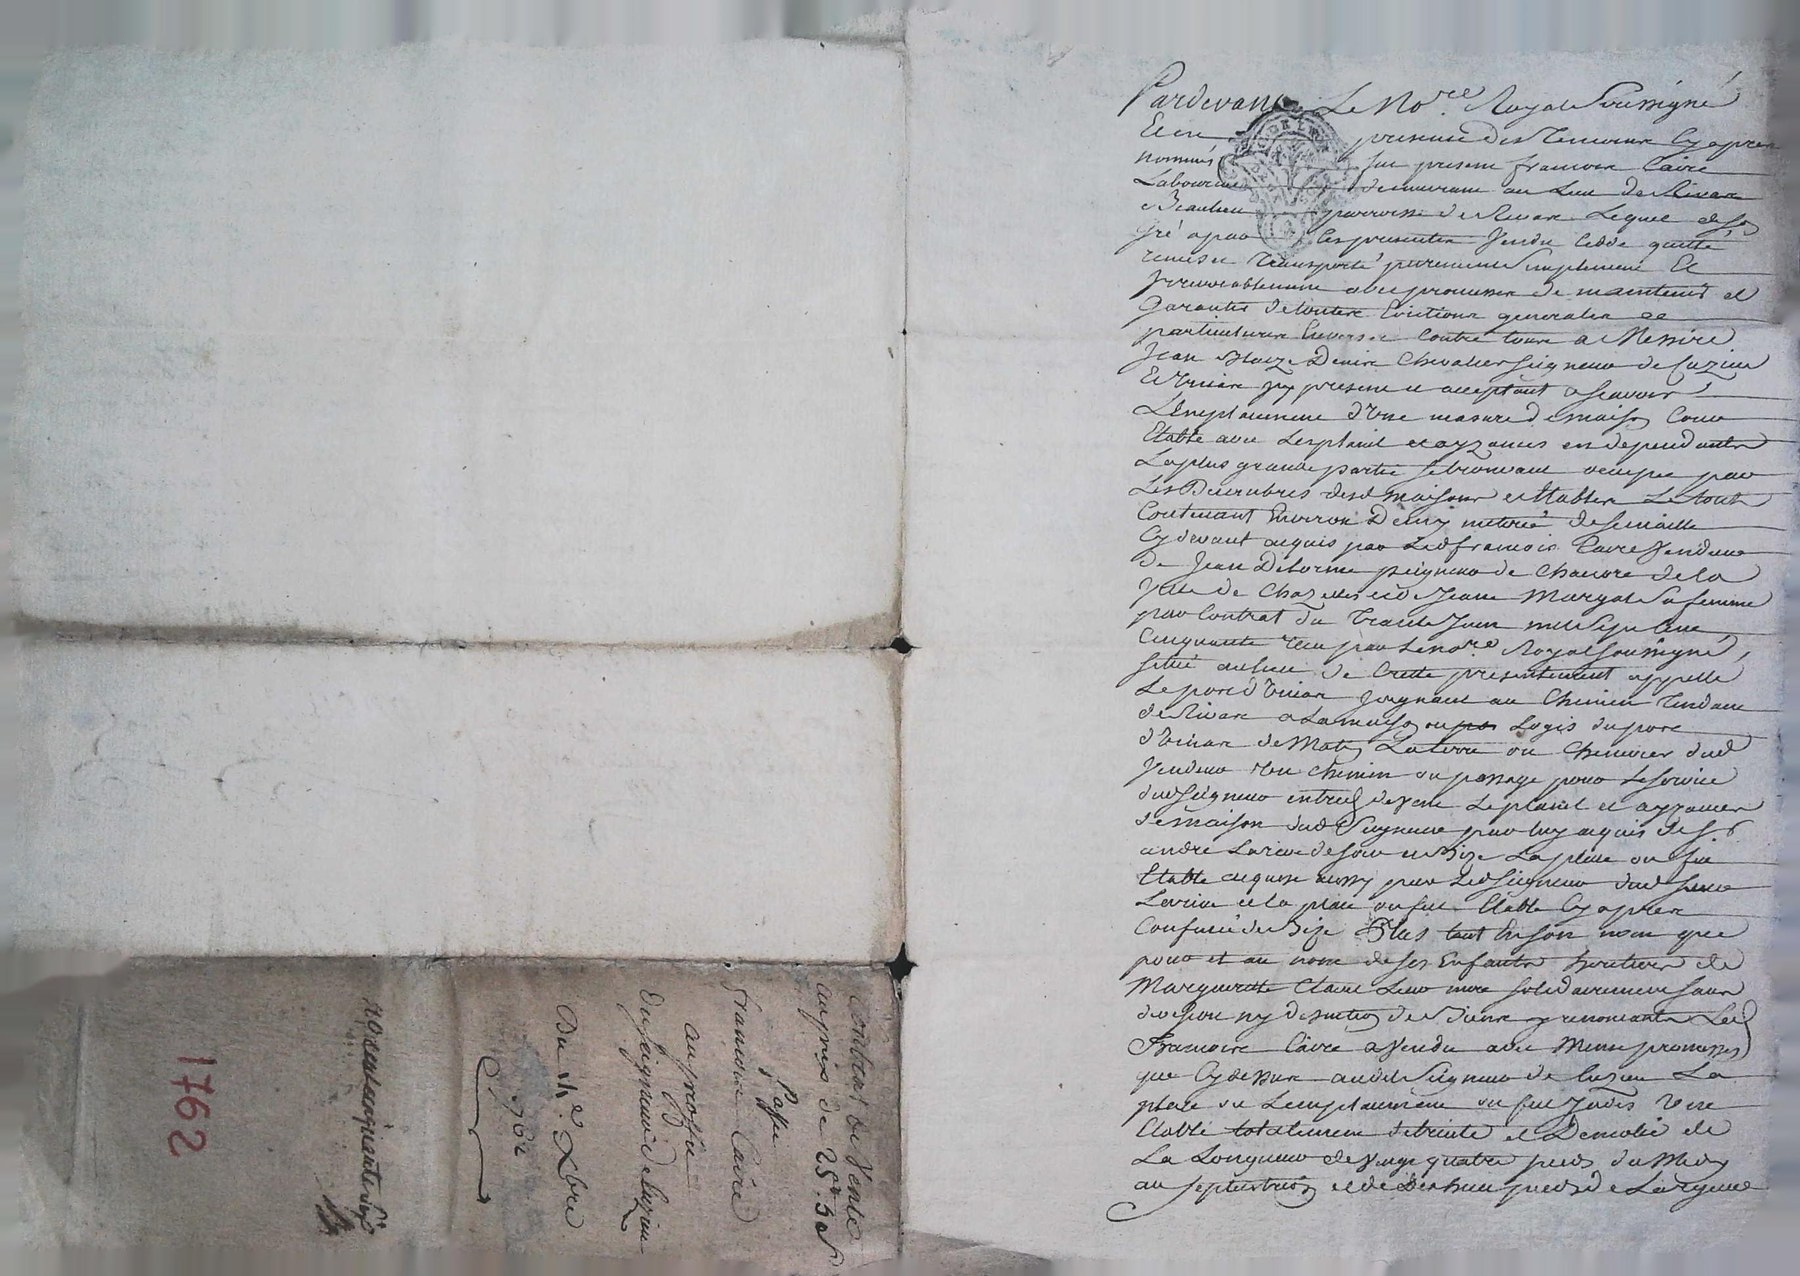 Pardevant Le No.re Royal Soussigné
Et en presence des Temoins Cy apres
nommés fut present francois Caire
Laboureur demeurant au Lieu de
Beaulieu parroisse de Lequel de son
gré a par les presentes Vendu Cedde quitté
remis et Transporté purement Simplement Et
Irrevocablement avec promesse de maintenir et
garantir de toutes Evictions generales et
particulieres Envers et Contre tous a Messire
Jean Denis Chevalier Seigneur de Cuzieu
Et Unias icy present et acceptant a scavoir
L'Emplacement d'Une masure de maison Cour
Etable avec Les plaint et ayzances en dependantes
La plus grande partie se trouvant occupée par
Les Decombres desd maisons et Etables Le tout
Contenant Environ Demy meterée de semaille
Cy devant acquis par Led francois Caire Vendeur
de Jean Delorme peigneur de Chanvre de la
Ville de Chazelles et de Jeanne Sa femme
par Contrat du Trante Juin mil Sept Cent
Cinquante recu par Le no.re Royal soussigné,
situé au lieu de presentement appellé
Le port d'Unias Joignant au Chemin Tendant
de a La maison ou Logis du port
d'Unias de Matin La terre ou Chenevier dud
Vendeur Un chemin ou passage pour Le service
dud Seigneur entre deux de Vent Le plaint et ayzances
de maison dud Seigneur par luy acquis de
andré de soir et Bize La place ou fut
Etable acquise aussy par Led Seigneur dud
et la place ou fut Etable Cy apres
Confinée de Bize Plus tant En son nom que
pour et au nom de ses Enfants heritiers de
Marguerite Claire Leur mere solidairement sans
division ny de biens y renoncants Led
Francois Caire a Vendu avec Meme promesse
que Cy dessus aud Seigneur de Cuzieu La
place ou L'emplacement ou fut Jadis Une
Etable totalement detruite et Demolie de
La Longueur de Vingt quatre pieds du Midy
au septentrion et de Dix huit pieds de Largeur
Contrat de Vente
au prix de 25# 5s
Passé
francois Caire
au proffit
du seigneur de Cuzieu
Du Xbre
1762
No cent cinquante Six
1762